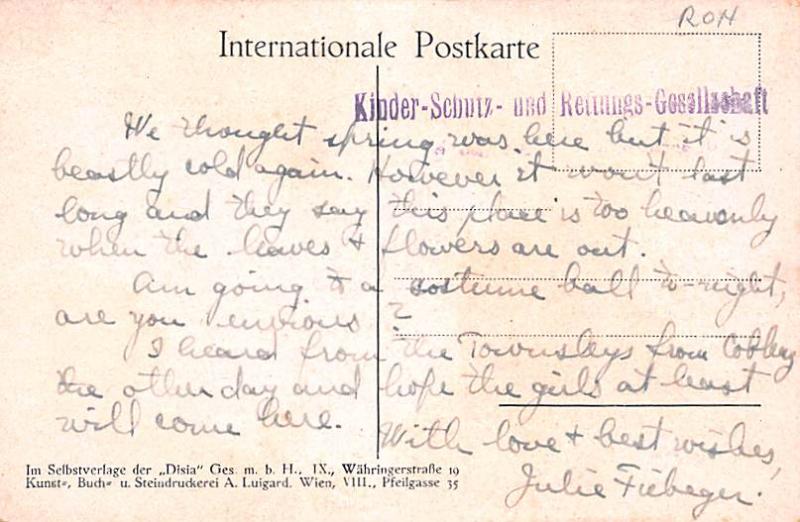 ROH
Internationale Postkarte
Kinder-Schutz- und Rettungs-Gesellschaft
We thought spring was here but it is
beastly cold again. However it won't last
long and they say this place is too heavenly
when the leaves & flowers are out.
Am going to a costume ball to-night,
are you envious?
I heard from the Townsleys from Coblenz
the other day and hope the girls at least
will come here.
With love & best wishes,
Julie Fiebeger.
Im Selbstverlage der „Disia" Ges. m. b. H., IX., Währingerstraße 19
Kunst-, Buch- u. Steindruckerei A. Luigard. Wien, VIII., Pfeilgasse 35